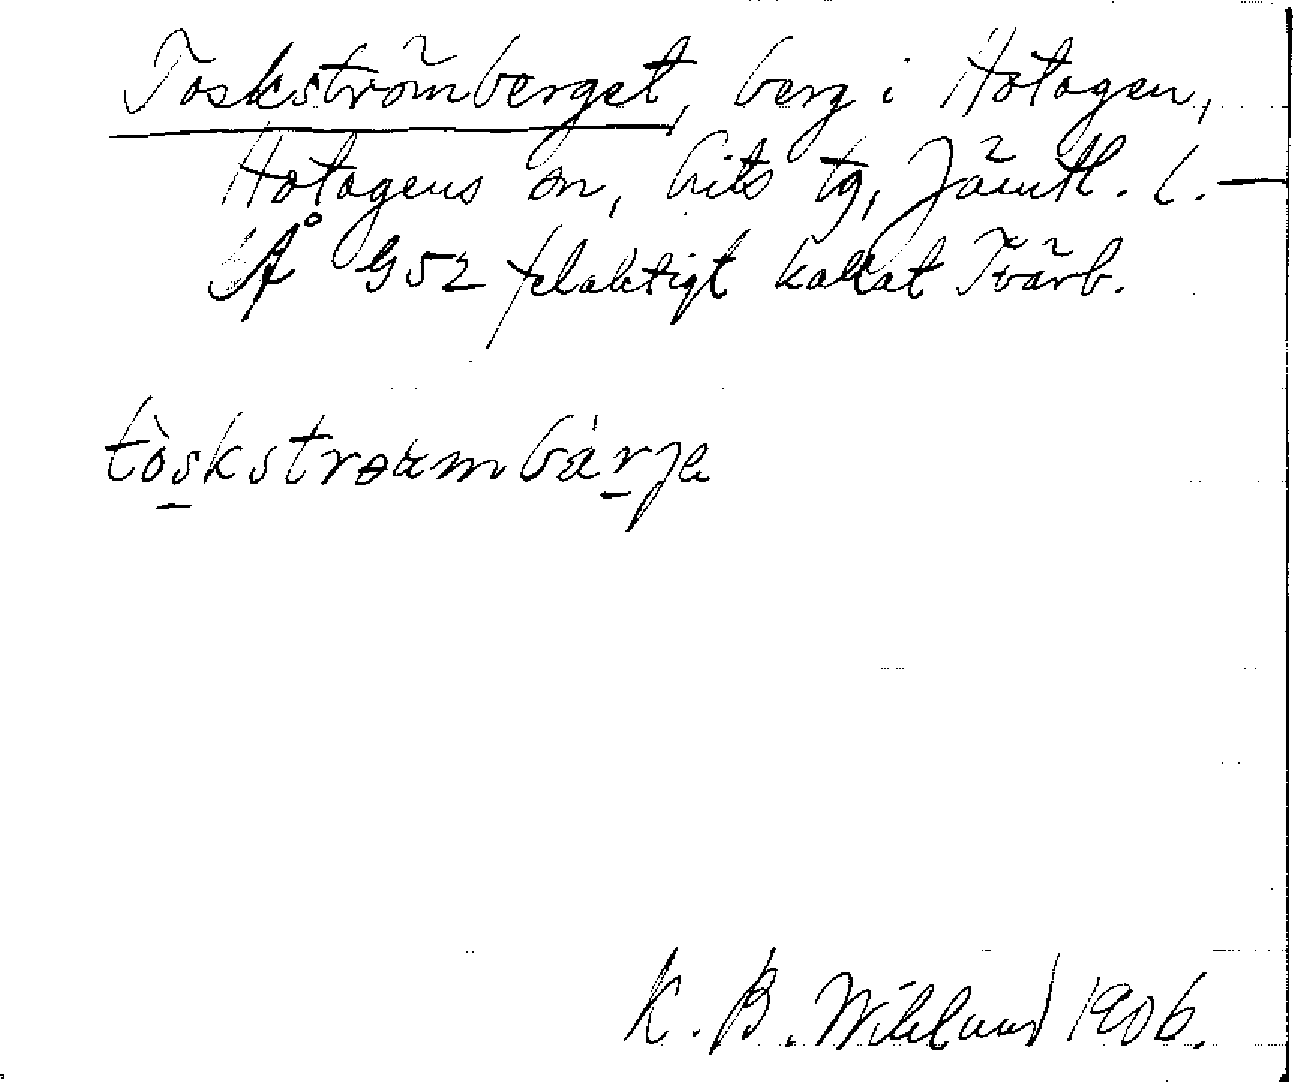 Toskströmberget, berg i Hotagen,
Hotagens sn, Lits tg, Jämtl. l. —
Å G52 felaktigt kallat Tvärb.
tòskstrøæmbä́rje
K. B. Wiklund 1906.